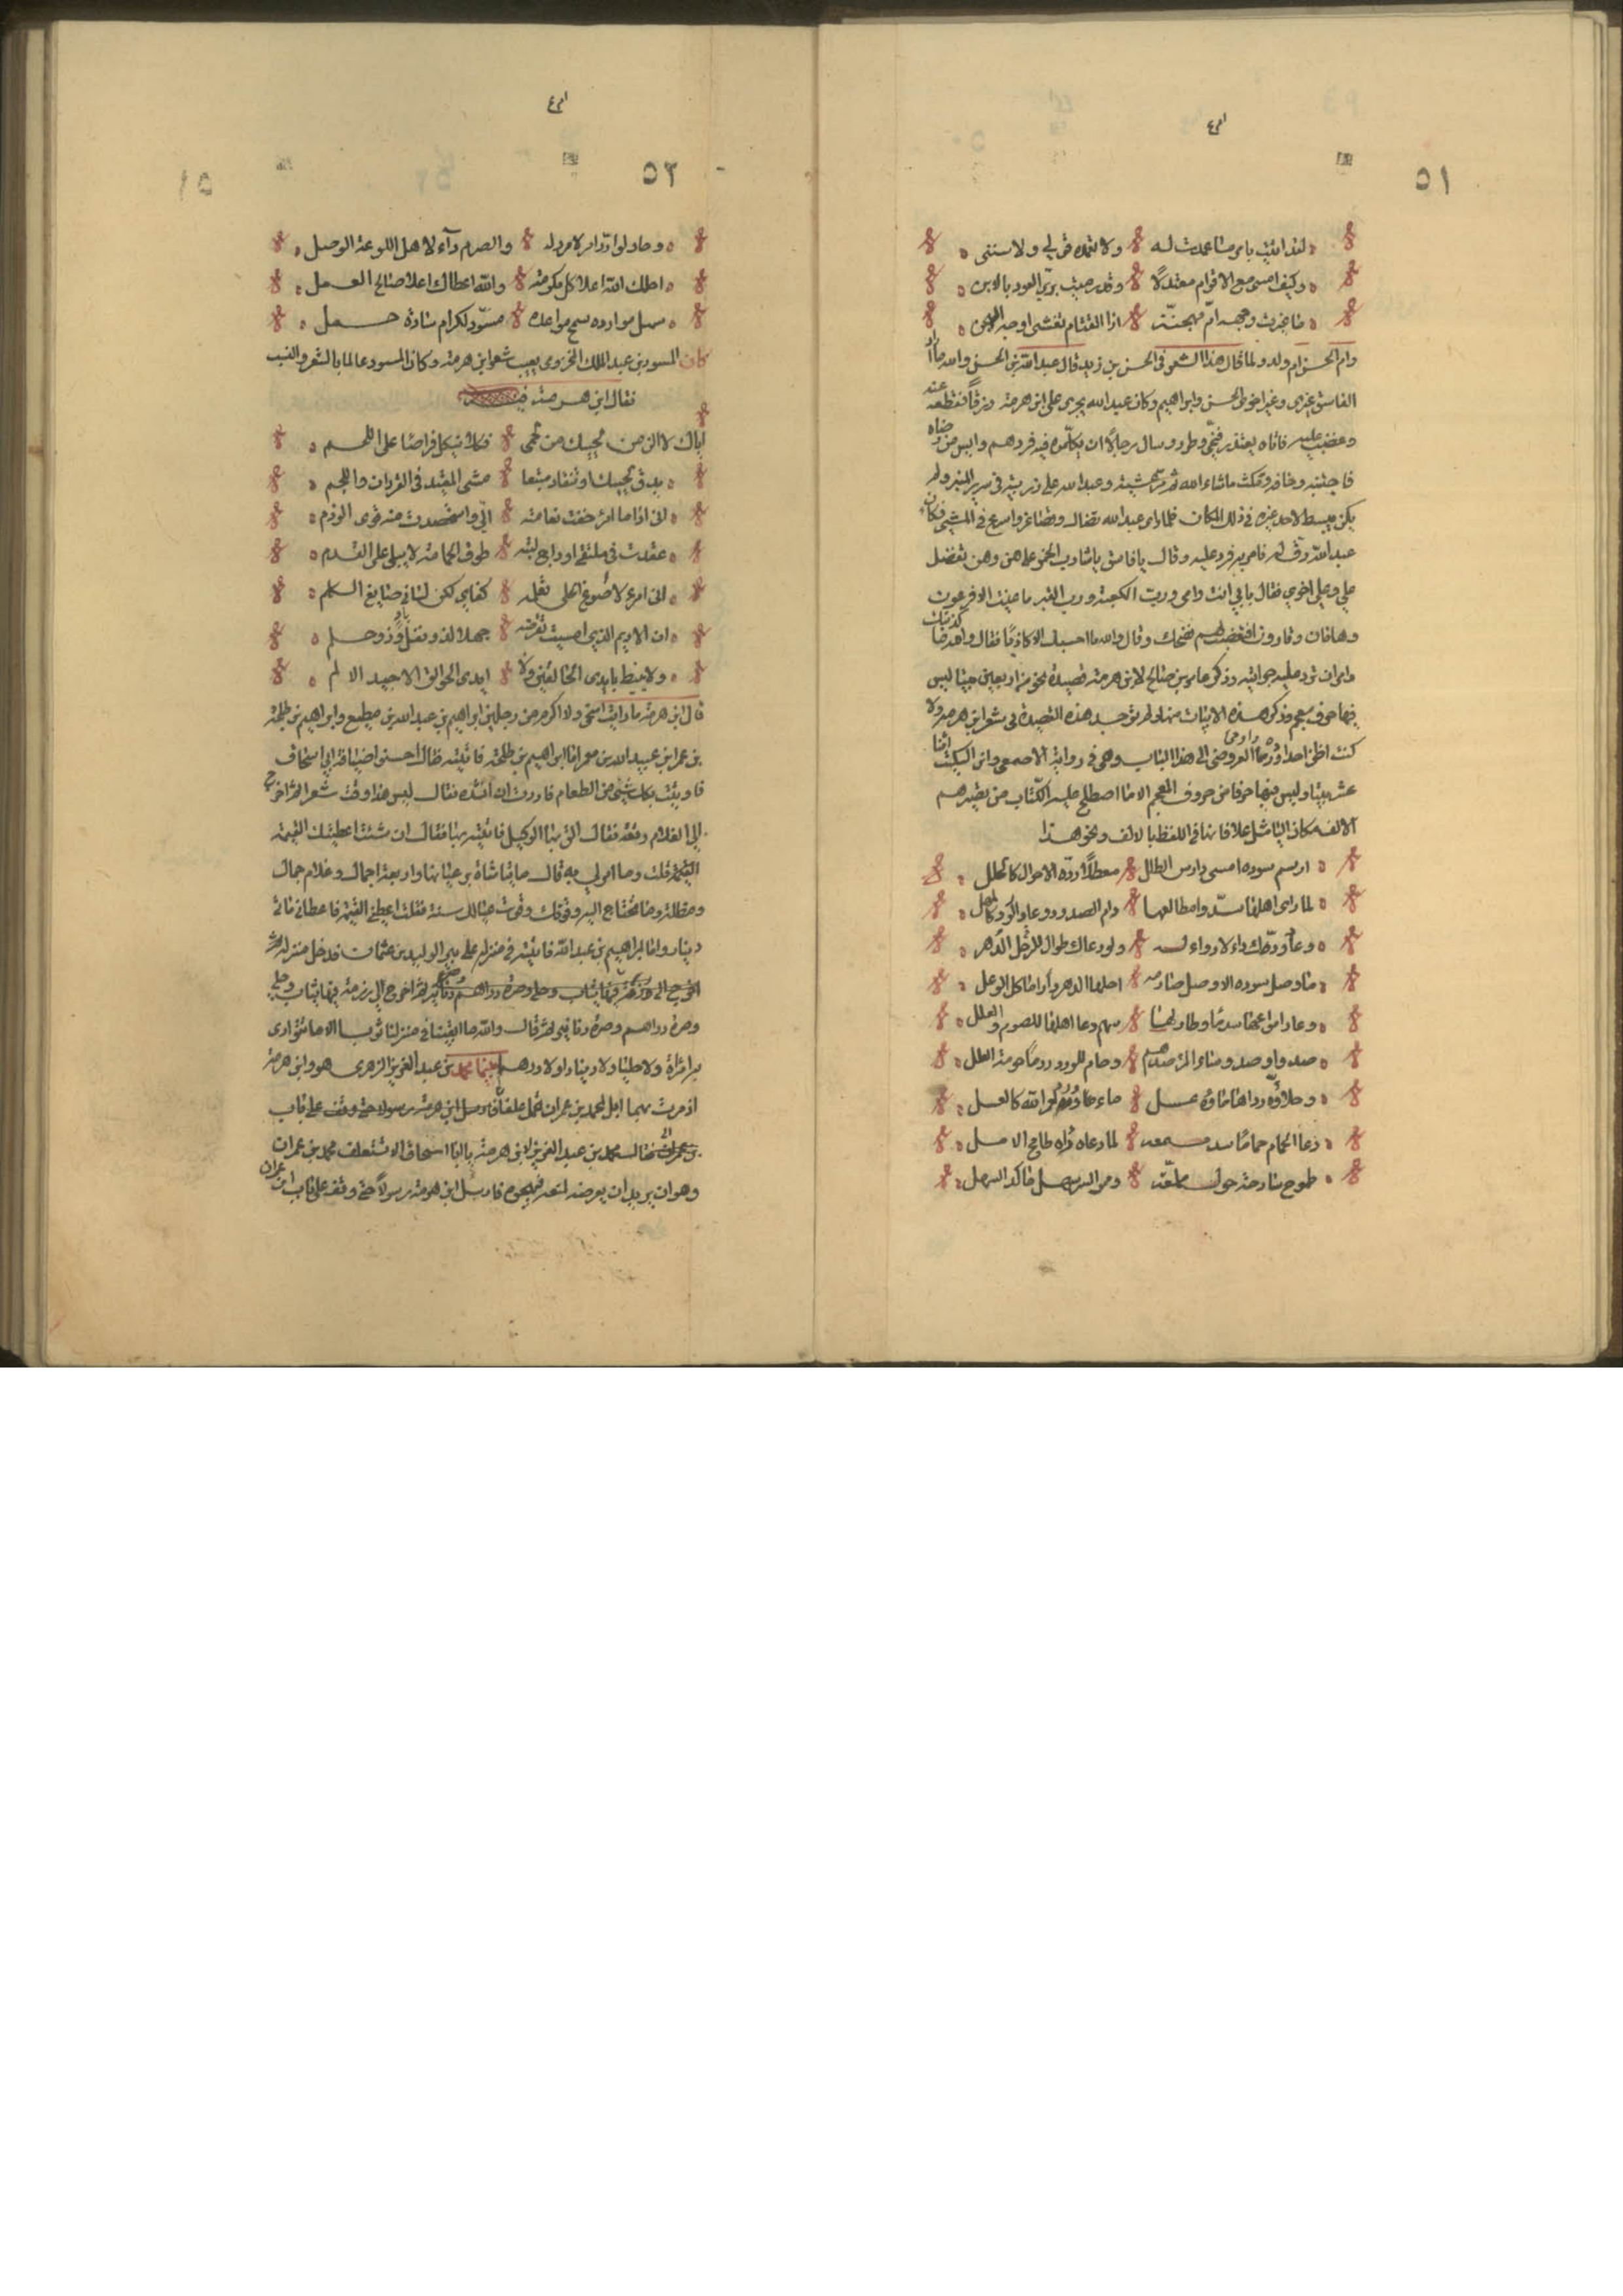 ٥١
لقد اتيت بامر ما عمدت له ولا تعمده قولي ولا سنني
وكيف امشي مع الاقوام معتدلا وقد رميت بريّ العود بالابن
ما غيرت وجهه امّ مهجنة اذا القتام تغشى اوجه الهجن
وام الحسن ام ولد ولما قال هذا الشعر في الحسن بن زيد قال عبد الله بن الحسن والله ما اراد
الفاسق غيري وغير اخوي الحسن وابراهيم وكان عبد الله يجري على ابن هرمة رزقا فقطعه عنه
وغضب عليه فاتاه يعتذر فنحي وطرد وسال رجالا ان يكلموه فيه فردهم وايس من رضاه
فاجتنبه وخافه فمكث ماشاء الله ثم مر عشية وعبد الله على زربية في سرير المنبر ولم
يكن يبسط لاحد غيره في ذلك المكان فلما راى عبد الله تضال وتصاغر واسرع في المشي فكان
عبد الله رق له فامر به فرد عليه وقال يا فاسق يا شارب الخمر على هن وهن تفضل
علي وعلى اخوي فقال بابي انت وامي ورب الكعبة ورب القبر ما عنيت الا فرعون
وهامان وقارون افتغضب لهم فضحك وقال والله ما احسبك الا كاذبا فقال والله ما كذبتك
وامر ان ترد عليه جرايته وذكر عامر بن صالح لابن هرمة قصيدة نحو من اربعين بيتا ليس
فيها حرف معجم وذكر هذه الابيات منها ولم نجد هذه القصيدة في شعر ابن هرمة ولا
كنت اظن احدا العروضي الى هذا الباب وهي في رواية الاصمعي وابن السكيت اثنا
عشر بيتا وليس فيها حرف من حروف المعجم الا ما اصطلح عليه الكتاب من تصييرهم
الالف مكان اليا مثل اعلا فانها في اللفظ بالالف ونحو هذا
ارسم سوده امسى دارس الطلل معطلا ردّه الاحوال كالحلل
لما راى اهلها سدّوا مطالعها رام الصدود وعاد الود كالمهل
وعاد ودّك داء لا دواء له ولو دعاك طوال الدهر للرحل
ما وصل سوده الا وصل صارمه احلها الدهر دارا ماكل الوعل
وعاد امواهها سدما وطار لها سهم دعا اهلها للصرم والعلل
صدوا وصد وساء المرء صدهم وحام للورد ردها حومة العلل
وحلاوه رداها ماؤه عسل ماء ردّه لعمر الله كالعسل
دعا الحمام حماما سد مسمعه لما دعاه راه طامح الامل
طموح سارحة حول ملمعة وممرع السر سهل ماكد السهل
٥٢
وحاولوا ردّ امر لا مرد له والصرم داء لاهل اللوعة الوصل
احلك الله اعلا كل مكرمة والله اعطاك اعلا صالح العمل
سهل موارده سمح مواعده مسوّد لكرام سادة حمل
كان المسور بن عبد الملك المخزومي يعيب شعر ابن هرمة وكان المسور عالما بالشعر والنسب
فقال ابن هرمة فيه
اياك لا الزمن لحييك من لجمي نكلا ينكل قراصا على اللجم
يدق لحييك او تنقاد متبعا مشي المقيد في القردان والحلم
اني اذا ما امرؤ خفت نعامته اليّ واستحصدت منه قوى الوذم
عقدت في ملتقى اوداج لبته طوق الحمامة لا يبلى على القدم
اني امرؤ لا اصوغ الحلي تعمله كفاي لكن لساني صايغ الكلم
ان الاديم الذي امسيت تقرضه جهلا لذو نغل باد وذو حلم
ولا يئط بايدي الخالقين ولا ايدي الخوالق الا جيد الادم
قال ابن هرمة ما رايت اسخى ولا اكرم من رجلين ابراهيم بن عبد الله بن مطيع وابراهيم بن طلحة
بن عمر ابن عبيد الله بن معمر اما ابراهيم بن طلحة فاتيته فقال احسنوا ضيافة ابي اسحاق
فاوتيت بكل شيئ من الطعام فاردت ان انشده فقال ليس هذا وقت شعر ثم اخرج
الى الغلام رقعة فقال ائت بها الوكيل فاتيته بها فقال ان شئت اعطيتك القيمة
القيمة قلت وما امر لي به قال مايتا شاة برعيانها واربعة اجمال وغلام جمال
ومظلة وما تحتاج اليه وقوتك وقوت عيالك سنة فقلت اعطني القيمة فاعطاني مائتي
دينار واما ابراهيم بن عبد الله فاتيته في منزله على بير الوليد بن عثمان فدخل منزله ثم
اخرج الى رزمة فيها ثياب وحلي وصرة دراهم ودنانير ثم اخرج الي رزمة فيها ثياب وحلي
وصرة دراهم وصرة دنانير ثم قال والله ما ابقينا في منزلنا ثوبا الا ما نواري
به امراة ولا حليا ولا دينارا ولا درهما بينما محمد بن عبد العزيز الزهري هو وابن هرمة
اذ مرت بهما ابل لمحمد بن عمران تحمل علفا فارسل ابن هرمة رسولا حتى وقف على باب
بن عمران فقال له محمد بن عبد العزيز لابن هرمة يا ابا اسحاق الا تستعلف محمد بن عمران
وهو ان يريد ان يعرضه لمنعه فيهجوه فارسل ابن هرمة رسولا حتى وقف على باب ابن عمران